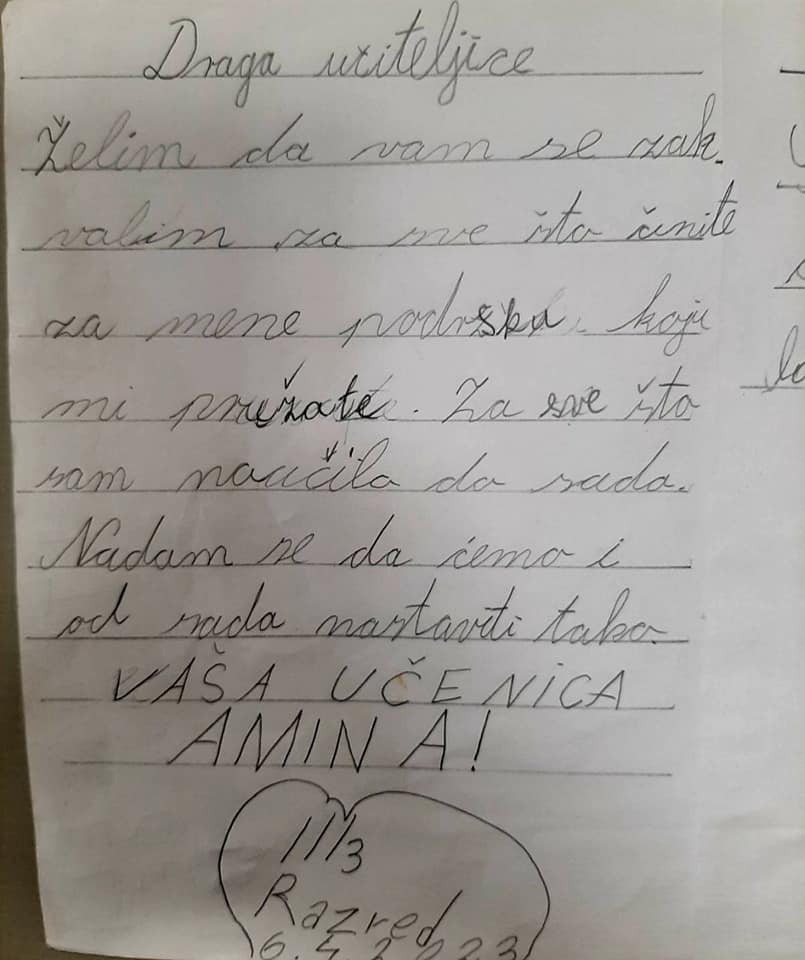 Draga učiteljice
Želim da vam se zak.
valim za sve što činite
za mene podršku koju
mi pružate. Za sve što
sam naučila do sada.
Nadam se da ćemo i
od sada nastaviti tako.
VAŠA UČENICA
AMINA!
III/3
Razred
6.4.2023